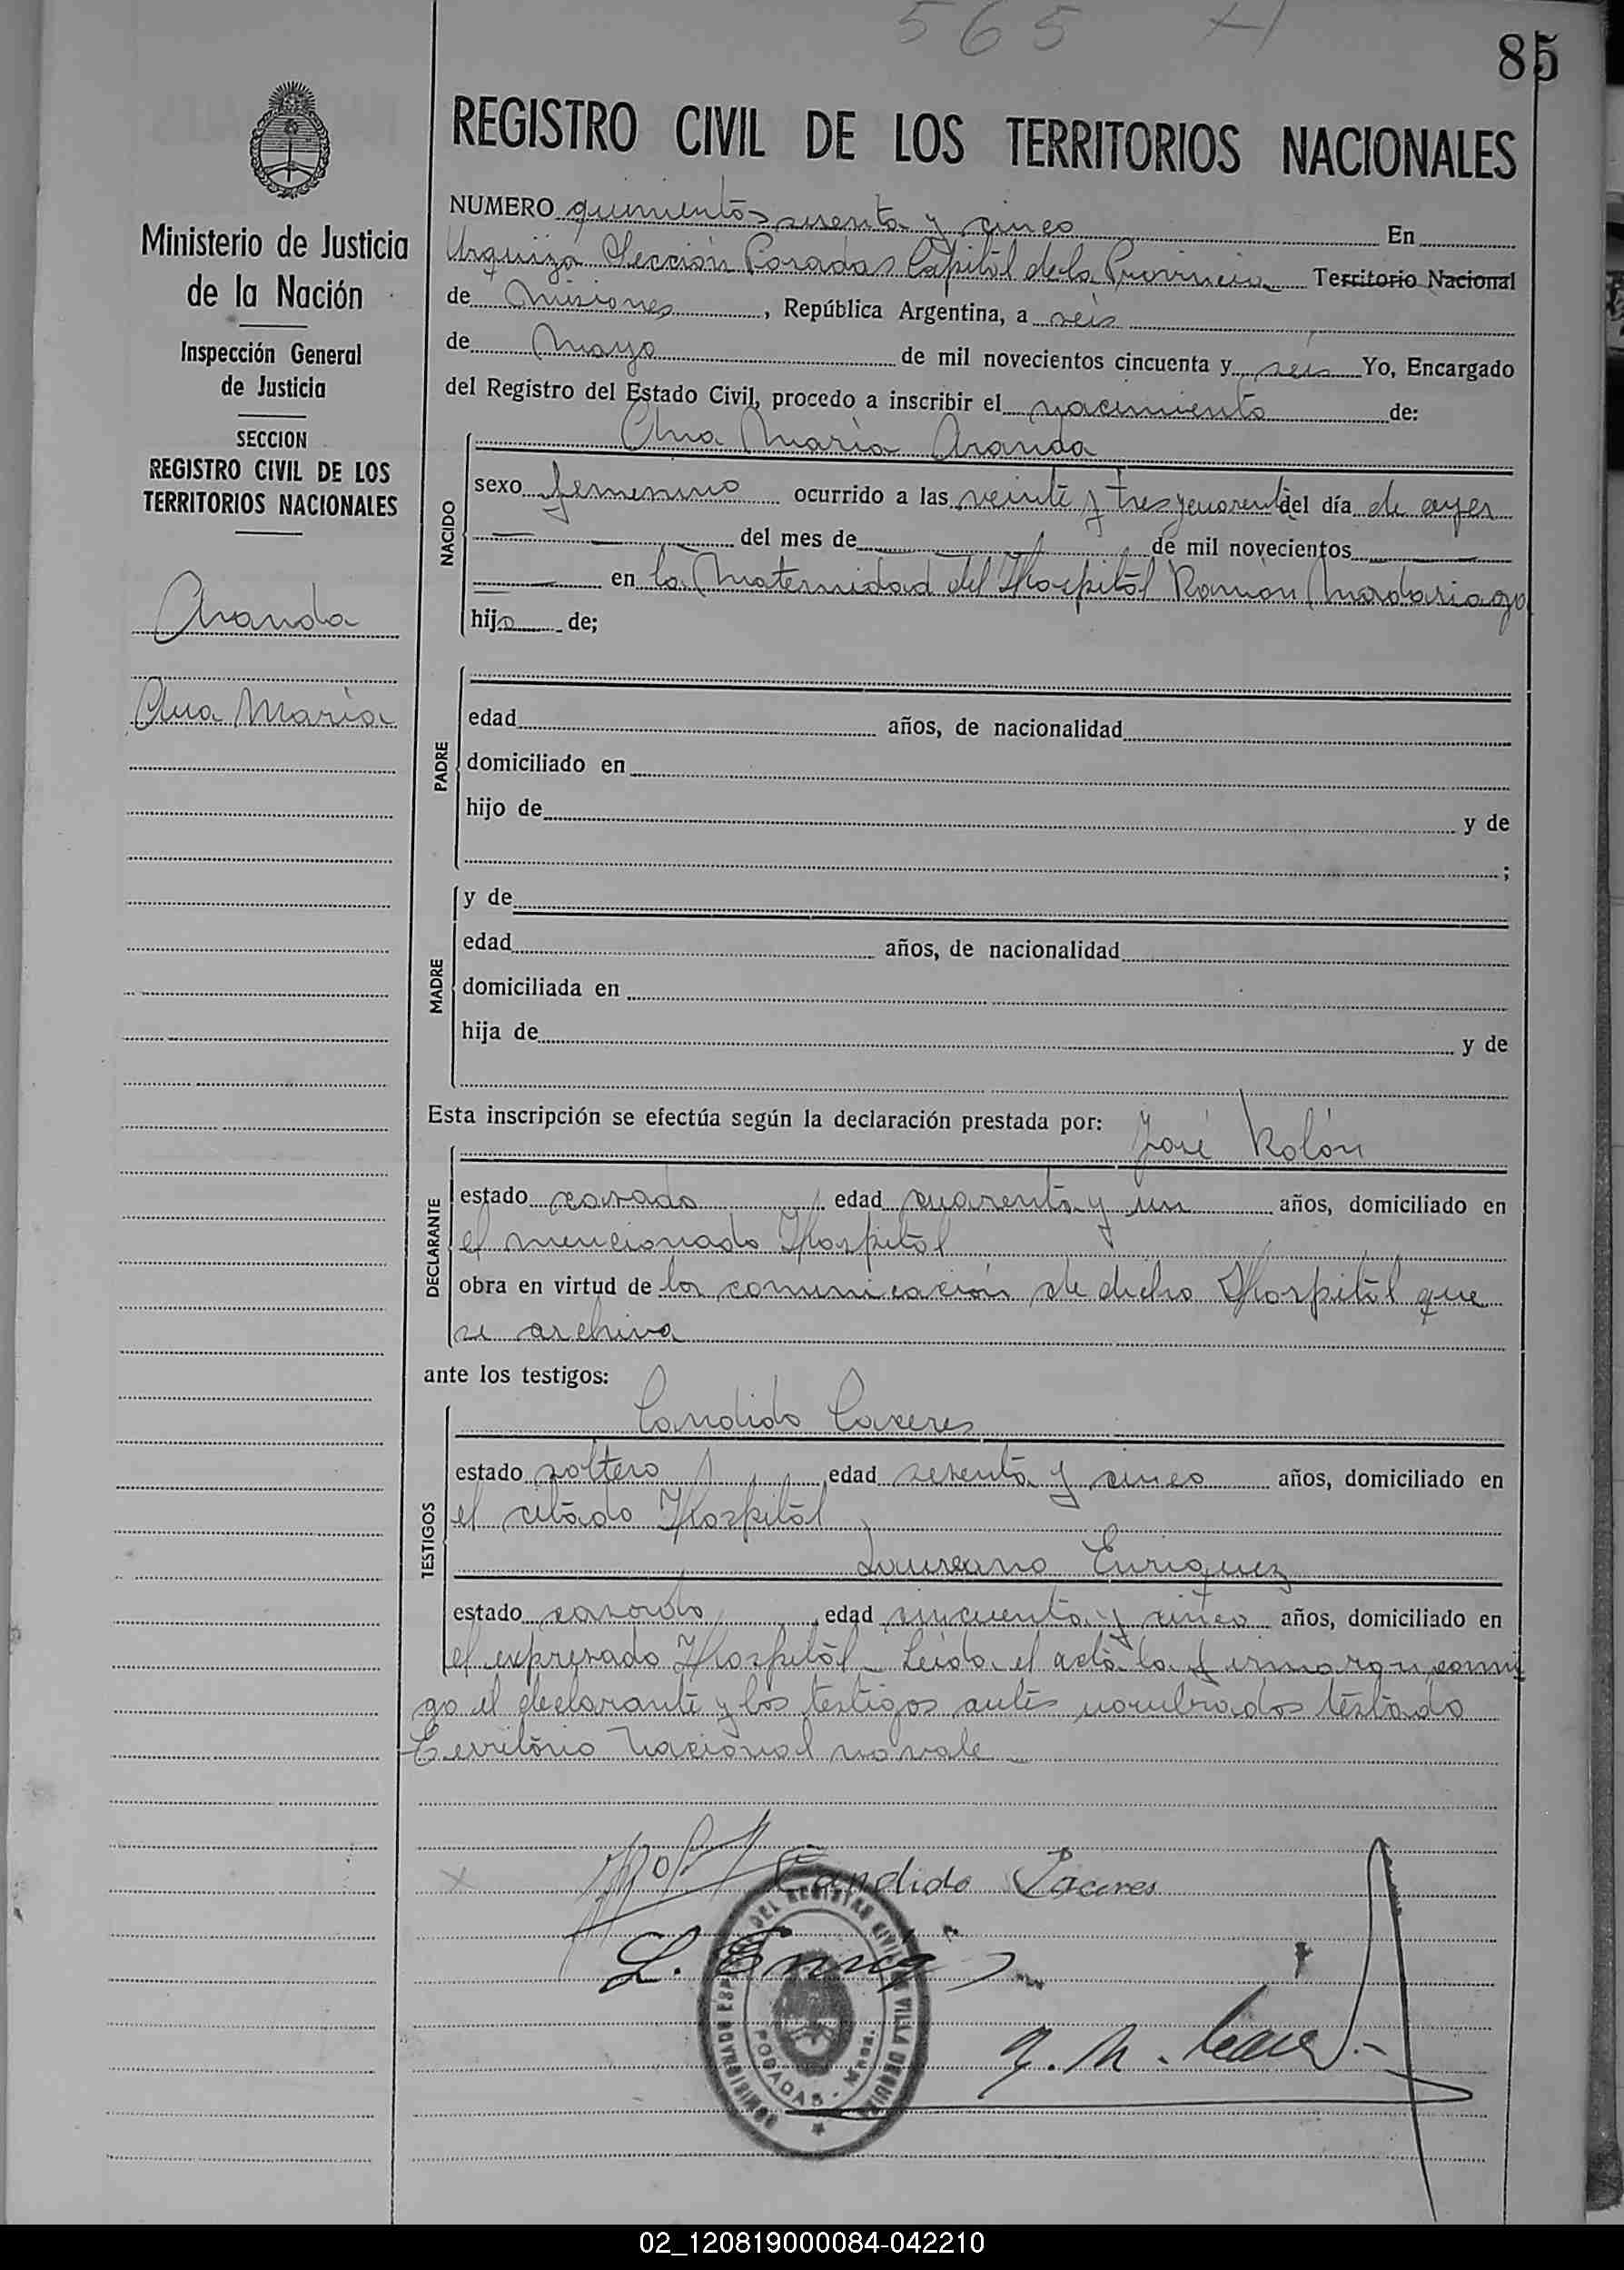 565
85
REGISTRO CIVIL DE LOS TERRITORIOS NACIONALES
Ministerio de Justicia
de la Nación
Inspección General
de Justicia
SECCION
REGISTRO CIVIL DE LOS
TERRITORIOS NACIONALES
Aranda
Ana María
NUMERO quinientos sesenta y cinco En
Urquiza Sección Posadas Capital de la Provincia Territorio Nacional
de Misiones, República Argentina, a seis
de Mayo de mil novecientos cincuenta y seis Yo, Encargado
del Registro del Estado Civil, procedo a inscribir el nacimiento de:
NACIDO
Ana María Aranda
sexo femenino ocurrido a las veinte y tres y cuarenta del día de ayer
del mes de de mil novecientos
en la Maternidad del Hospital Ramón Madariaga
hija de;
PADRE
edad años, de nacionalidad
domiciliado en
hijo de y de
;
MADRE
y de
edad años, de nacionalidad
domiciliada en
hija de y de
Esta inscripción se efectúa según la declaración prestada por: José Rolón
DECLARANTE
estado casado edad cuarenta y un años, domiciliado en
el mencionado Hospital
obra en virtud de la comunicación de dicho Hospital que
se archiva
ante los testigos:
TESTIGOS
Candido Caceres
estado soltero edad sesenta y cinco años, domiciliado en
el citado Hospital
Laureano Enriquez
estado casado edad cincuenta y cinco años, domiciliado en
el expresado Hospital Leida el acta la firmaron conmi
go el declarante y los testigos antes nombrados testado
Territorio Nacional no vale
Candido Caceres
L. Enriq
DEL REGISTRO CIVIL VILLA URQUIZA
POSADAS
02_120819000084-042210